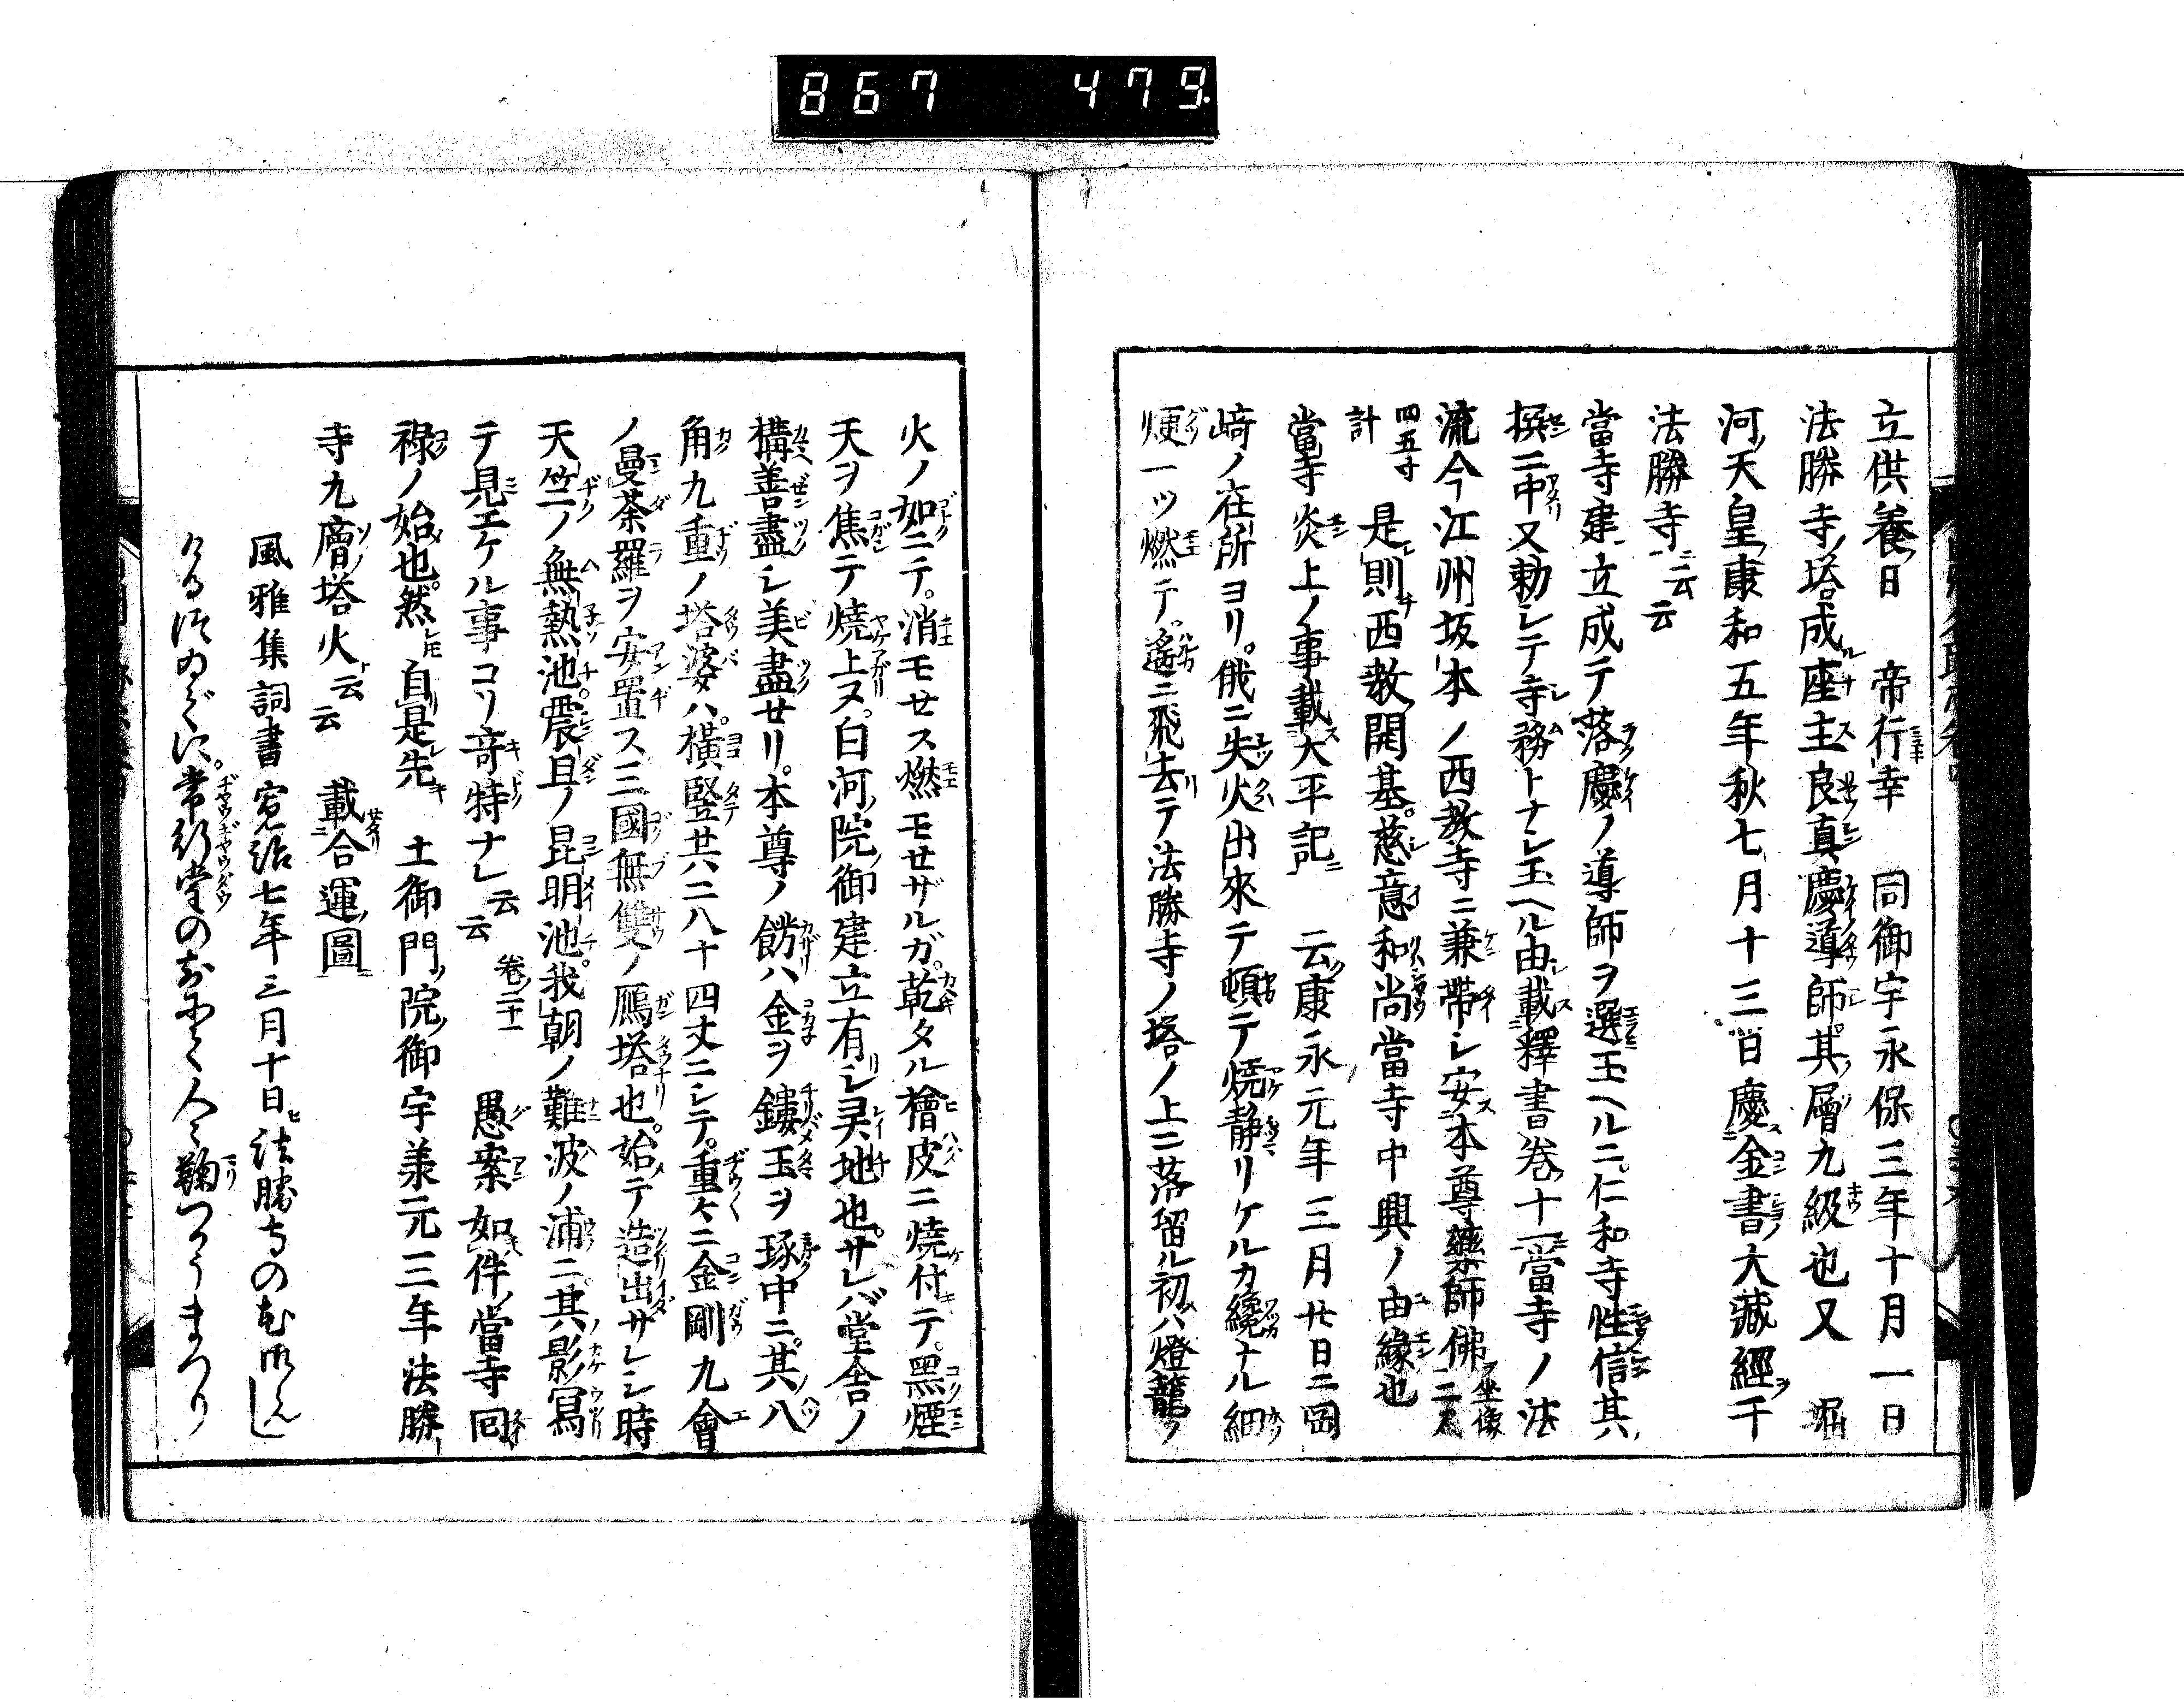 867 479.
立供養日 帝行幸 同御宇永保三年十月一日
法勝寺塔成座主良真慶導師其層九級也又 堀
河天皇康和五年秋七月十三日慶金書大藏經千
法勝寺云云
當寺建立成テ落慶ノ導師ヲ選玉ヘルニ仁和寺性信其
撰ニ中又勅シテ寺務トナシ玉ヘル由載釋書卷十一當寺ノ法
流今江州坂本ノ西教寺ニ兼帶シ安本尊藥師佛坐像二尺
四五寸計 是則西教開基慈意和尚當寺中興ノ由緣也
當寺炎上ノ事載大平記 云康永元年三月廿日ニ岡
﨑ノ在所ヨリ俄ニ失火出來テ頓テ燒靜リケルカ纔ナル細
煙一ツ燃テ遙ニ飛去テ法勝寺ノ塔ノ上ニ落留ル初ハ燈籠ノ
火ノ如ニテ消モセス燃モセザルガ乾タル檜皮ニ燒付テ黑煙
天ヲ焦テ燒上ヌ白河院御建立有シ灵地也サレバ堂舎ノ
構善盡シ美盡セリ本尊ノ餝ハ金ヲ鏤玉ヲ琢中ニ其八
角九重ノ塔婆ハ橫竪共ニ八十四丈ニシテ重々ニ金剛九會
ノ曼荼羅ヲ安置ス三國無雙ノ鴈塔也始テ造出サレシ時
天竺ノ無熱池震旦ノ昆明池我朝ノ難波ノ浦ニ其影寫
テ見エケル事コソ竒特ナレ云云 卷二十一 愚案如件當寺囘
祿ノ始也然自是先 土御門院御宇羕元三年法勝
寺九層塔火云云 載合運圖
風雅集詞書寛治七年三月十日法勝寺の花御らんし
けるつゐでに常行堂のまへにて人々鞠つかうまつり